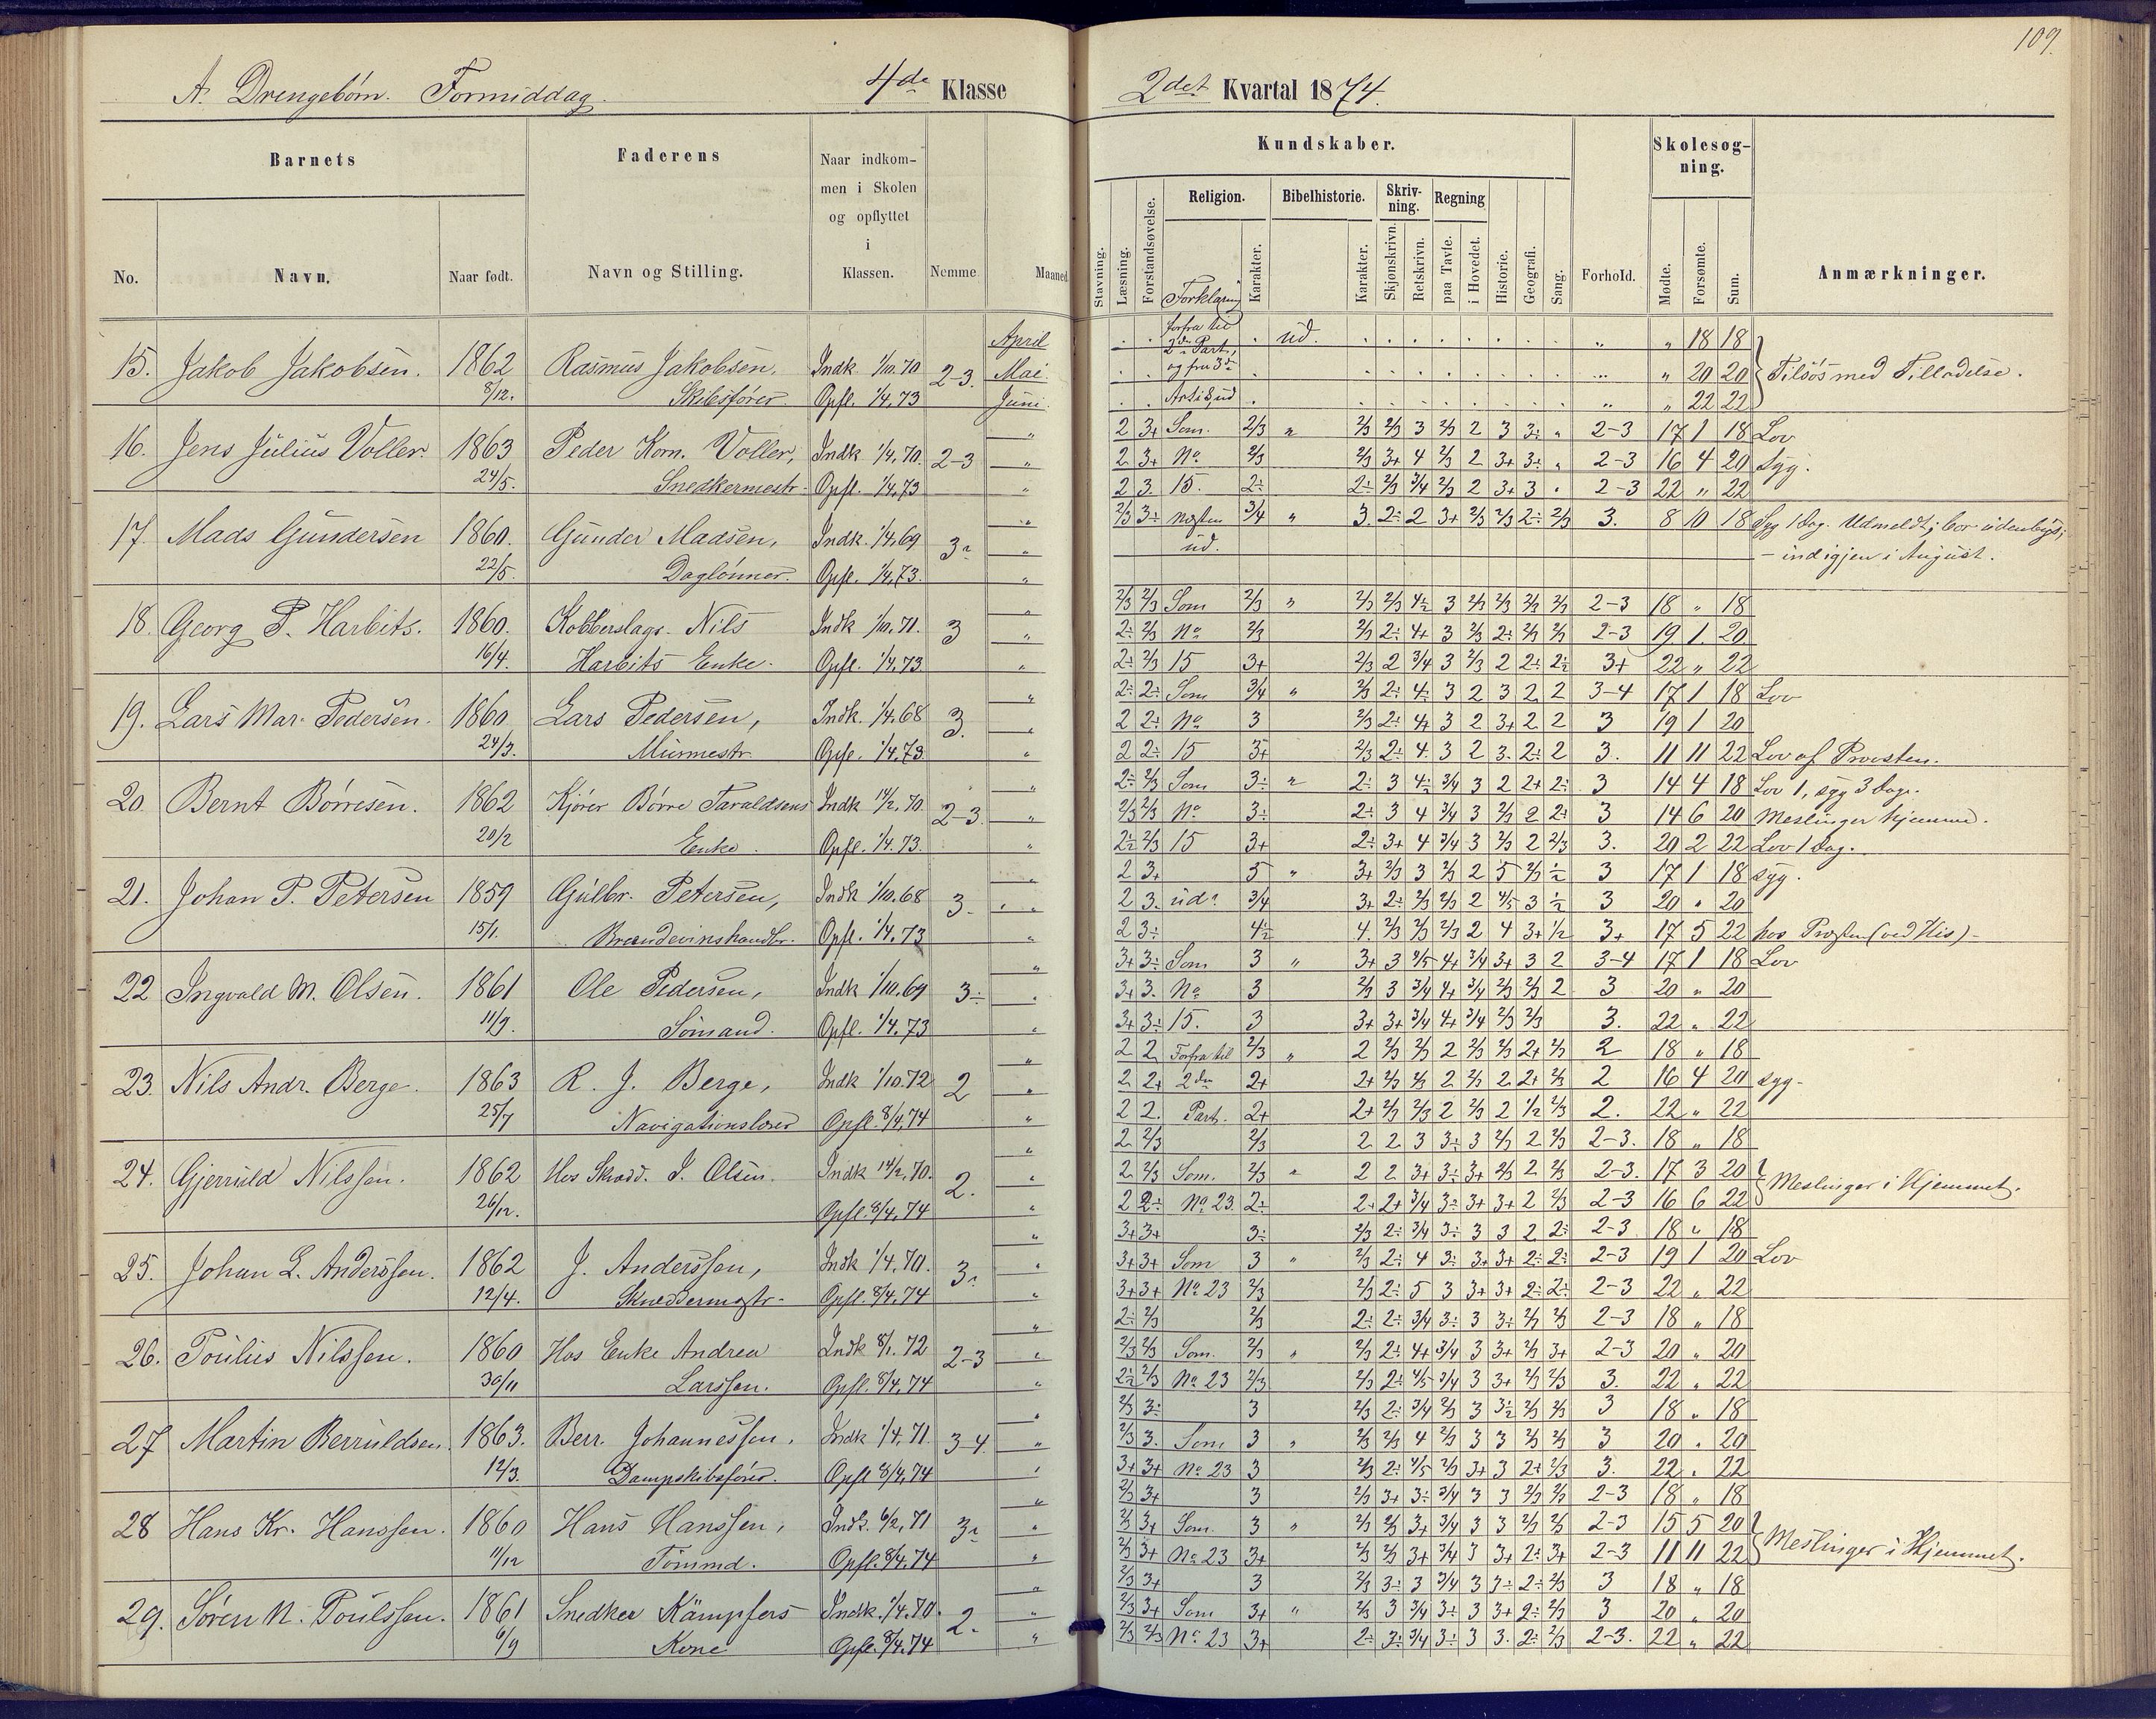 109.
A. Drengebørn. Formiddag. 4de Klasse
2det Kvartal 1874.
Barnets
Faderens
Naar indkommen i Skolen og opflyttet i Klassen.
Nemme
Maaned
No.
Navn.
Naar født.
Navn og Stilling.
Kundskaber.
Stavning.
Læsning.
Forstandsøvelse.
Religion.
Forklaring
Karakter.
Bibelhistorie.
Karakter.
Skrivning.
Skjønskrivn.
Retskrivn.
Regning
paa Tavle.
i Hovedet.
Historie.
Geografi.
Sang.
Forhold.
Skolesøgning.
Mødte.
Forsømte.
Sum.
Anmærkninger.
15. Jakob Jakobsen. 1862 8/12. Rasmus Jakobsen, Skibsfører. Indk 1/10.70 Opfl. 1/4.73 2-3.
April Forfra til ud. " 18 18
Mai 2den Part, og fra 3die " 20 20 Tilsøs med Tilladelse.
Juni Art. 3, ud " 22 22
16. Jens Julius Voller. 1863 24/5. Peder Korn. Voller, Snedkermestr. Indk 1/4.70. Opfl. 1/4.73 2-3
2 3+ Som. 2/3 " 2/3 2/3 3 2/3 2 3 3÷ " 2-3 17 1 18 Lov
2 3+ No 2/3 2/3 3+ 4 2/3 2 3+ 3÷ " 2-3 16 4 20 Syg.
2 3. 15. 2÷ 2÷ 2/3 3/4 2/3 2 3+ 3 . 2-3 22 " 22
17. Mads Gundersen 1860. 22/5. Gunder Madsen, Daglønner. Indk. 1/4.69 Opfl. 1/4.73. 3÷
2/3 3÷ næsten ud. 3/4 " 3. 2÷ 2 3+ 2/3 2/3 2÷ 2/3 3. 8 10 18 Syg 1 Dag. Udmeldt; bor udenbyes;
- ind igjen i August.
18. Georg P. Harbits. 1860. 16/4. Kobberslagr. Nils Harbits Enke. Indk 1/10.71. Opfl. 1/4.73 3
2/3 2/3 Som 2/3 " 2/3 2/3 4÷ 3 2/3 2/3 2/3 2/3 2-3 18 " 18
2÷ 2/3 No 2/3 2/3 2÷ 4+ 3 2/3 2÷ 2/3 2/3 2-3 19 1. 20
2÷ 2/3 15 3+ 2/3 2 3/4 3 2/3 2 2÷ 2÷ 3+ 22 " 22
19. Lars Mar. Pedersen. 1860 24/3. Lars Pedersen, Murmestr. Indk. 1/4.68 Opfl. 1/4.73 3.
2÷ 2÷ Som 3/4 " 2/3 2÷ 4÷ 3 2 3 2 2 3-4 17 1 18 Lov
2 2÷ No 3 2/3 2÷ 4+ 3 2 3+ 2 2 3 19 1 20
2 2÷ 15 3+ 2/3 2÷ 4. 3 2 3. 2÷ 2 3. 11 11 22 Lov af Provsten.
20. Bernt Børresen. 1862 20/2 Kjører Børre Taraldsens Enke. Indk 14/2.70. Opfl. 1/4.73. 2-3.
2÷ 2/3 Som 3÷ " 2÷ 3 4÷ 3/4 3 2 2+ 2÷ 3 14 4 18 Lov 1, syg 3 Dage.
2/3 2/3 No 3÷ 2÷ 3 4 3/4 3 2/3 2 2÷ 3 14 6 20 Meslinger hjemme.
2÷ 2/3 15 3+ 2÷ 3+ 4 3/4 3 2/3 2 2/3 3. 20 2 22 Lov 1 Dag.
21. Johan P. Petersen 1859 15/1. Gulbr. Petersen, Brændevinshandlr. Indk 1/10.68 Opfl. 1/4.73 3.
2 3+ 5 " 3+ 2/3 3 2/3 2 5 2/3 3 17 1 18 syg.
2 3. ud. 3/4 3+ 2÷ 2/3 2/3 2 4/5 3 3 20 " 20
2 3÷ 4÷ 4. 2/3 2/3 2/3 2 4 3+ 1/2 3+ 17 5 22 hos Præsten (ved His) -
22 Ingvald M. Olsen. 1861 11/9. Ole Pedersen, Sømand. Indk 1/10.69 Opfl. 1/4.73 3÷
3+ 3÷ Som 3 " 3+ 3 4/5 4+ 3/4 3+ 3 2 3-4 17 1 18 Lov
3+ 3. No 3 2/3 3 3/4 4+ 3/4 2/3 2/3 2 3 20 " 20
3+ 3÷ 15. 3 3+ 3+ 3/4 4+ 3/4 2/3 2/3 3. 22 " 22
23. Nils Andr. Berge. 1863 25/7 R. J. Berge, Navigationslærer Indk 1/10.72 Opfl. 8/4.74 2
2 2 Forfra til 2/3 " 2 2/3 2/3 2 2/3 2/3 2+ 2/3 2 18 " 18
2 2+ 2den 2+ 2+ 2/3 2/3 2 2/3 2 2+ 2/3 2 16 4 20 syg.
2 2. Part. 2+ 2+ 2/3 2/3 2 2/3 2 1/2 2/3 2. 22 " 22
24. Gjeruld Nilssen. 1862 26/12. Hos Skrædd. J. Olsen. Indk 14/2.70. Opfl. 8/4.74 2.
2 2/3 2/3 2 2 3 3÷ 3 2/3 2 2/3 2-3. 18 " 18
2 2/3 Som. 2/3 " 2 2 3+ 3÷ 3+ 2/3 2 2/3 2-3. 17 3 20 Meslinger i Hjemmet.
2 2÷ No 23. 2÷ 2+ 2+ 3/4 3÷ 3+ 3+ 2 2/3 2-3 16 6 22
25. Johan L. Anderssen. 1862 12/4. J. Anderssen, Skræddermestr. Indk 1/4.70. Opfl. 8/4.74 3÷
3+ 3+ 3÷ 2/3 2÷ 3/4 3÷ 3 3 2 2÷ 2-3 18 " 18
3+ 3+ Som 3 " 2/3 2÷ 4 3÷ 3+ 3+ 2÷ 2÷ 2-3 19 1 20 Lov
3+ 3+ No 23 2/3 2/3 2÷ 5 3 3+ 3+ 2÷ 2÷ 2-3 22 " 22
26. Poulius Nilssen. 1860 30/11 Hos Enke Andrea Larssen. Indk 8/1.72 Opfl. 8/4.74 2-3
2÷ 2/3 2/3 2÷ 2÷ 3/4 3÷ 3 3÷ 2/3 2/3 2-3 18 " 18
2/3 2/3 Som. 2/3 " 2/3 2÷ 4+ 3/4 3 3+ 2/3 3+ 2-3 20 " 20
2÷ 2/3 No 23 2/3 2/3 2÷ 4/5 3/4 3 3+ 2/3 2/3 3. 22 " 22
27 Martin Berruldsen. 1863. 12/3. Berr. Johannessen, Dampskibsfører. Indk 1/4.71. Opfl 8/4.74 3-4.
2/3 3÷ 3 2/3 2÷ 3/4 2/3 3 3÷ 2/3 2/3 3 18 " 18
2/3 3. Som 3 " 2/3 2/3 4 2/3 3 3 2/3 2/3 3 20 " 20
3+ 3+ No 23 3 2/3 2÷ 4/5 2/3 3+ 3 2+ 2/3 3. 22 " 22
28 Hans Kr. Hanssen. 1860 11/12 Hans Hanssen, Tømmd. Indk. 6/2.71 Opfl. 8/4.74 3÷
2/3 3+ 3 2/3 3+ 3÷ 3/4 3 3 2/3 2/3 2-3 18 " 18
2/3 3+ Som. 3 " 2/3 2/3 3+ 3/4 3 3 2/3 2/3 2-3 15 5 20 Meslinger i Hjemmet.
2/3 3+ No 23 3+ 2/3 2/3 3+ 3/4 3 3+ 2÷ 3+ 2-3 11 11 22
29. Søren N. Poulssen. 1861 6/9 Snedker Kämpfers Kone Indk. 1/4.70. Opfl. 8/4.74 2.
2/3 3+ 3 2/3 3÷ 3 3/4 3 3÷ 2÷ 2/3 3 18 " 18
2/3 3+ Som 3+ " 2/3 3 3/4 3÷ 3 3+ 2÷ 2/3 3 20 " 20
2/3 2/3 No 23 3+ 2÷ 3÷ 3/4 3÷ 3 3. 2÷ 2/3 2-3. 22 " 22